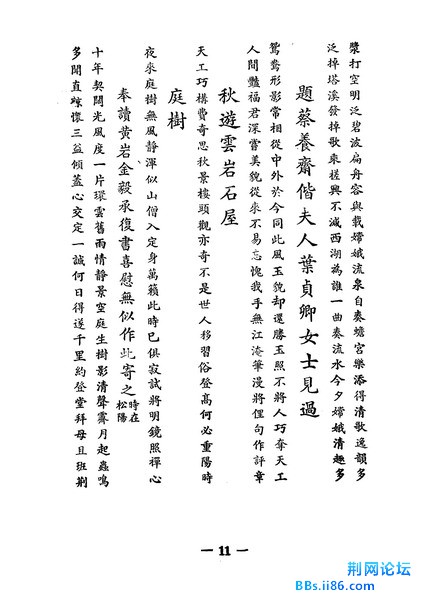 槳打空明泛碧波扁舟容與載嫦娥流泉自奏蟾宮樂添得清歌逸韻多
泛掉塔溪發掉歌來槎興不減西湖為誰一曲奏流水今夕嫦娥清趣多
題蔡養齋偕夫人葉貞卿女士見過
鴛鴦形影常相從中外於今同此風玉貌却還勝玉照不將人巧奪天工
人間豔福君深嘗美貌從來不易忘愧我手無江淹筆漫將俚句作評章
秋遊雲岩石屋
天工巧構費奇思秋景樓頭觀亦奇不是世人移習俗登高何必重陽時
庭樹
夜來庭樹無風靜渾似山僧入定身萬籟此時已俱寂試將明鏡照禪心
奉讀黃岩金毅承復書喜慰無似作此寄之時在松陽
十年契闊光風度一片環雲舊雨情靜景空庭生樹影清聲霽月起蟲鳴
多聞直諒懷三益傾蓋心交定一誠何日得遂千里約登堂拜母且班荆
— 11 —
荆网论坛
BBs.ii86.com